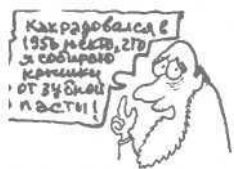 Как радовался в
1956 некто, что
я собираю
крышки
от зубной
пасты!